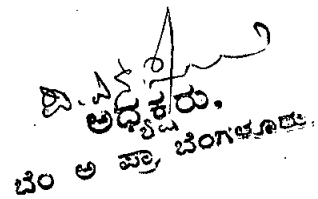 ಅಧ್ಯಕ್ಷರು,
ಬೆಂ ಅ ಪ್ರಾ, ಬೆಂಗಳೂರು.